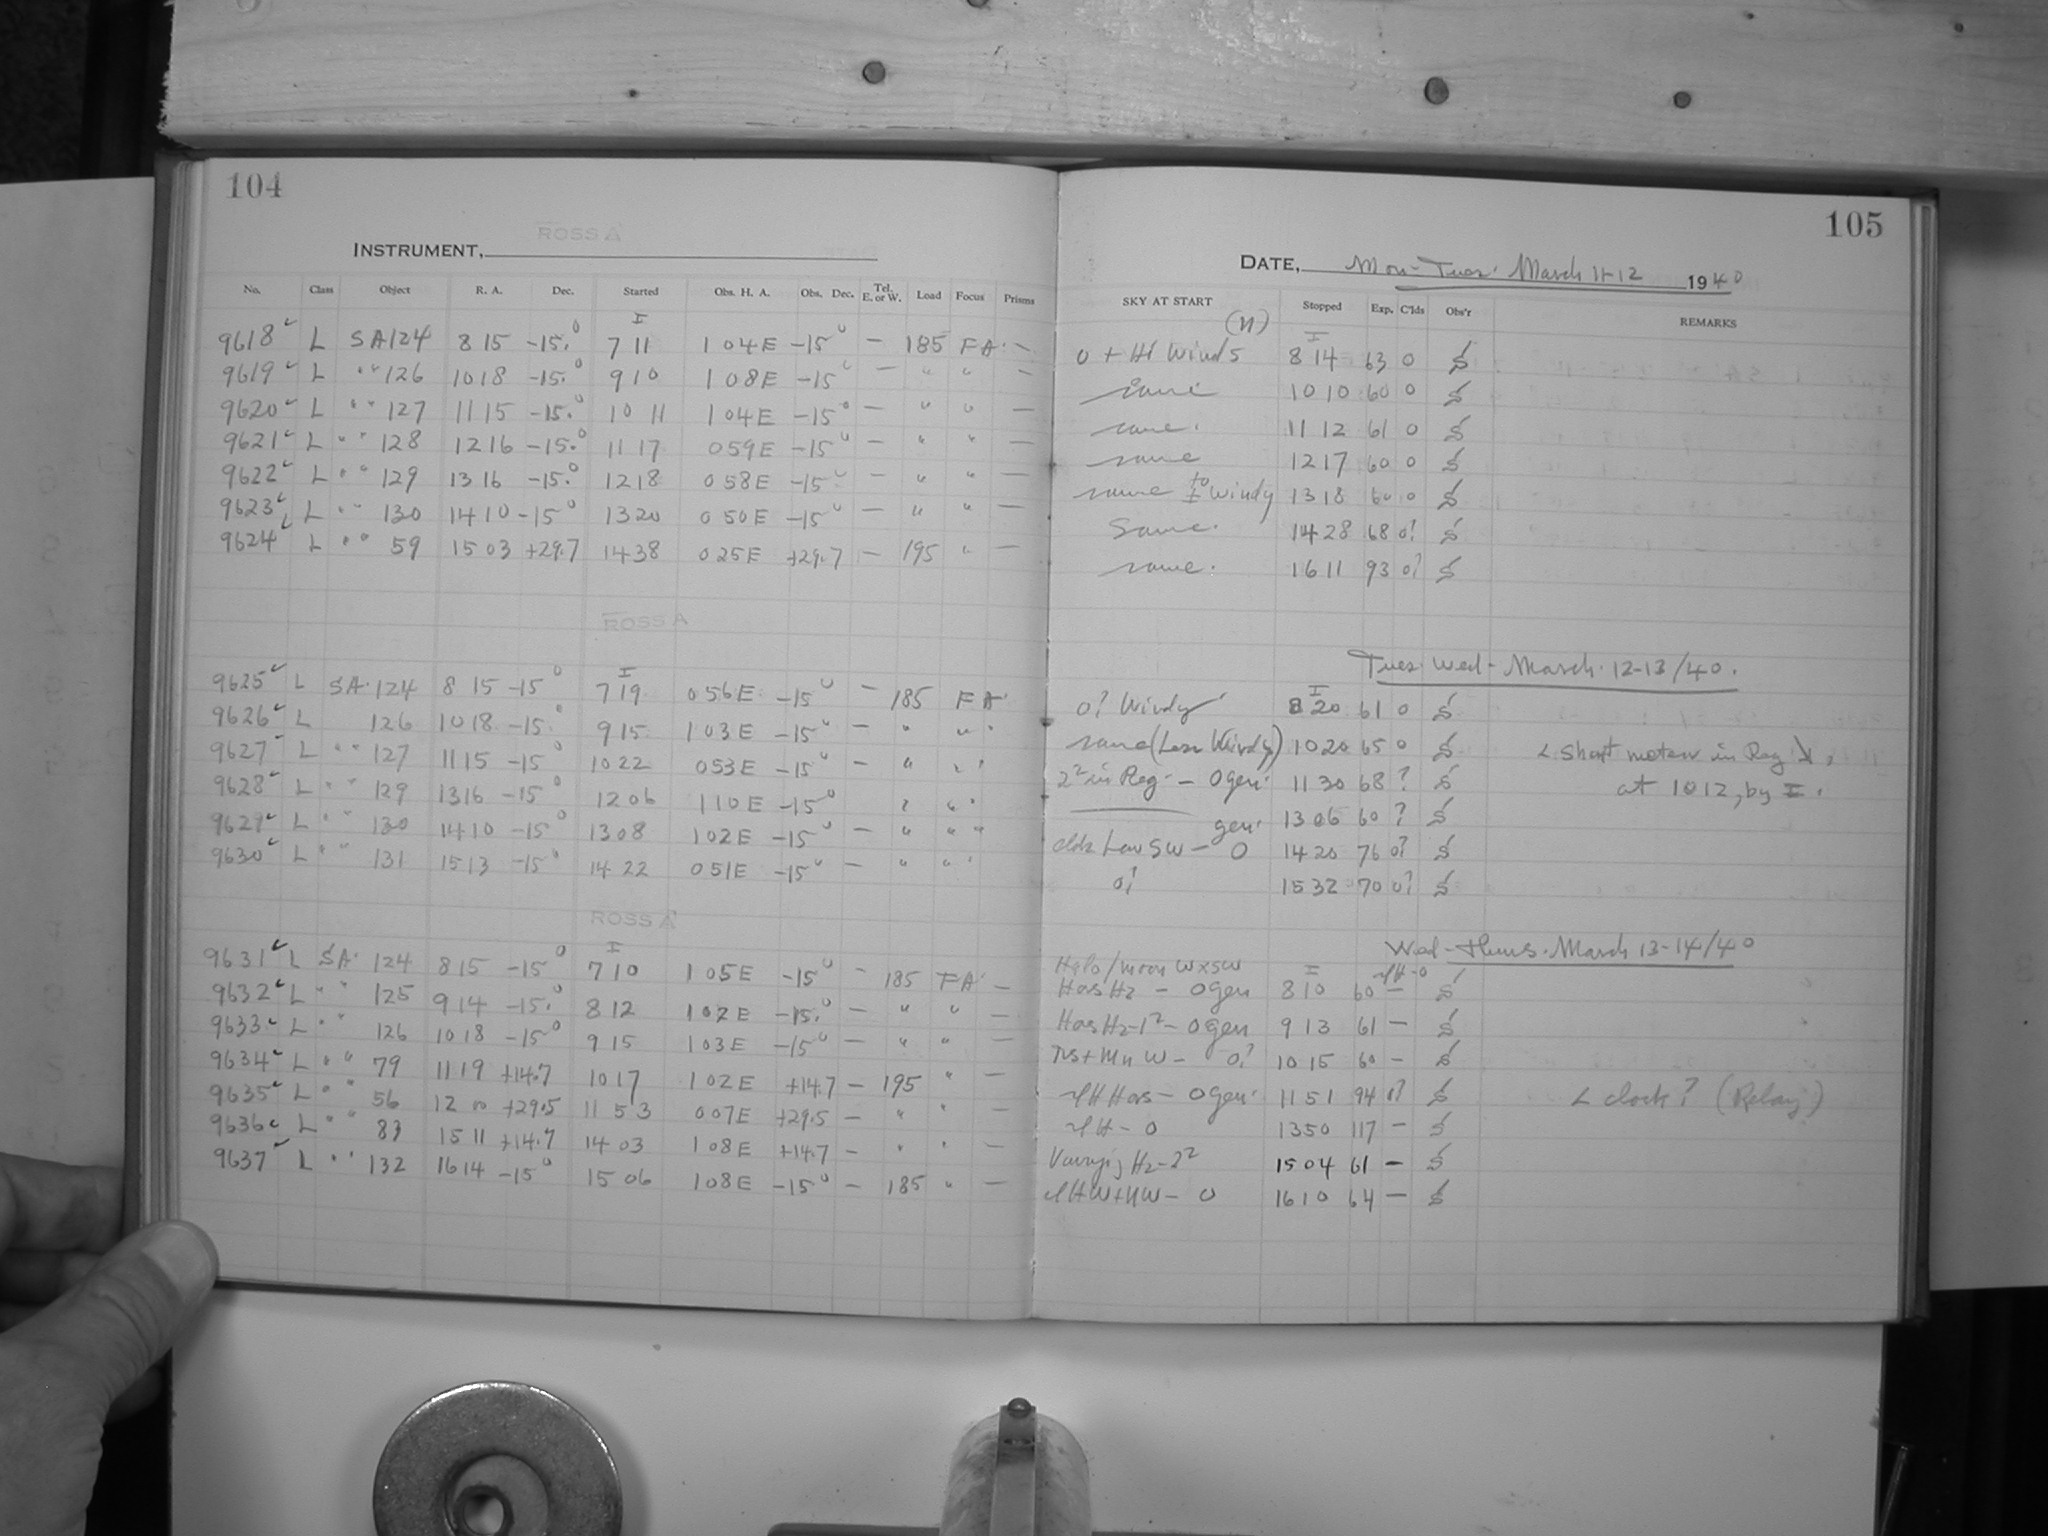 104
ROSS A
INSTRUMENT,
No. Class Object R. A. Dec. Started Obs. H. A. Obs. Dec. Tel. E. or W. Load Focus Prisms
I
9618 L SA 124 8 15 -15.0 7 11 1 04 E -15° — 185 FA —
9619 L " " 126 10 18 -15.0 9 10 1 08 E -15° — " " —
9620 L " " 127 11 15 -15.0 10 11 1 04 E -15° — " " —
9621 L " " 128 12 16 -15.0 11 17 0 59 E -15° — " " —
9622 L " " 129 13 16 -15.0 12 18 0 58 E -15° — " " —
9623 L " " 130 14 10 -15° 13 20 0 50 E -15° — " " —
9624 L " " 59 15 03 +29.7 14 38 0 25 E +29.7 — 195 " —
ROSS A
I
9625 L SA 124 8 15 -15° 7 19 0 56 E -15° — 185 FA
9626 L 126 10 18 -15° 9 15 1 03 E -15° — " "
9627 L " " 127 11 15 -15° 10 22 0 53 E -15° — " "
9628 L " " 129 13 16 -15° 12 06 1 10 E -15° " "
9629 L " " 130 14 10 -15° 13 08 1 02 E -15° — " "
9630 L " " 131 15 13 -15° 14 22 0 51 E -15° — " "
ROSS A
I
9631 L SA 124 8 15 -15° 7 10 1 05 E -15° — 185 FA —
9632 L " " 125 9 14 -15.0 8 12 1 02 E -15.0 — " " —
9633 L " " 126 10 18 -15° 9 15 1 03 E -15° — " " —
9634 L " " 79 11 19 +14.7 10 17 1 02 E +14.7 — 195 " —
9635 L " " 56 12 00 +29.5 11 53 0 07 E +29.5 — " " —
9636 L " " 83 15 11 +14.7 14 03 1 08 E +14.7 — " " —
9637 L " " 132 16 14 -15° 15 06 1 08 E -15° — 185 " —
105
DATE, Mon-Tues. March 11-12 1940
SKY AT START Stopped Exp. C'lds Obs'r REMARKS
(N) I
0 + Hi Winds 8 14 63 0 S
same 10 10 60 0 S
same. 11 12 61 0 S
same 12 17 60 0 S
same to Windy 13 18 60 0 S
Same. 14 28 68 0? S
same. 16 11 93 0? S
Tues-Wed- March 12-13/40.
I
0? Windy 8 20 61 0 S
same (Less Windy) 10 20 65 0 S < Short meteor in Reg
2² in Reg - 0 gen. 11 30 68 ? S at 1012, by I.
13 06 60 ? S
clds Low SW - 0 gen. 14 20 76 0? S
0? 15 32 70 0? S
Wed-Thurs. March 13-14/40
Halo/moon WxSW I
Has H2 - 0 gen 8 10 60 — S
Has H2-1² - 0 gen 9 13 61 — S
W - 0? 10 15 60 — S
Has - 0 gen. 11 51 94 0? S < clock? (Relay)
- 0 13 50 117 — S
Varying H2-2² 15 04 61 — S
W+NW - 0 16 10 64 — S